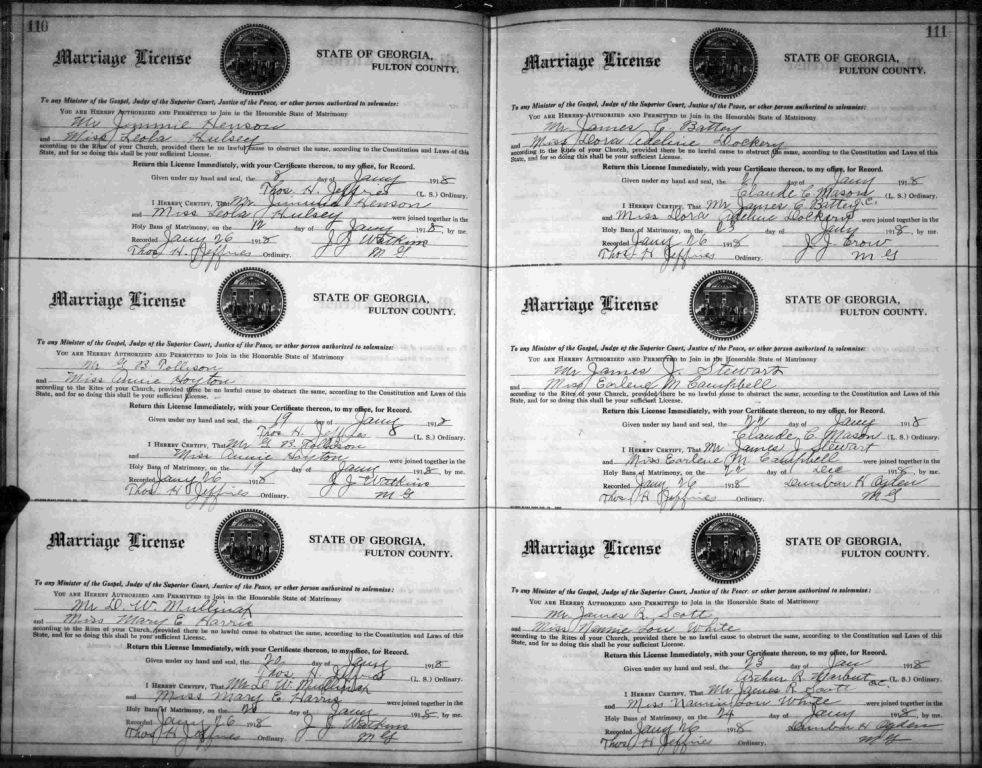 110
Marriage License
STATE OF GEORGIA,
FULTON COUNTY.
To any Minister of the Gospel, Judge of the Superior Court, Justice of the Peace, or other person authorized to solemnize:
YOU ARE HEREBY AUTHORIZED AND PERMITTED to Join in the Honorable State of Matrimony
Mr Jimmie Henson
and Miss Leola Hulsey
according to the Rites of your Church, provided there be no lawful cause to obstruct the same, according to the Constitution and Laws of this
State, and for so doing this shall be your sufficient License.
Return this License Immediately, with your Certificate thereon, to my office, for Record.
Given under my hand and seal, the 8 day of Jany 1918
Thos H. Jeffries (L. S.) Ordinary.
I HEREBY CERTIFY, That Mr Jimmie Henson
and Miss Leola Hulsey were joined together in the
Holy Bans of Matrimony, on the 12 day of Jany 1918, by me.
Recorded Jany 26 1918 J J Watkins
Thos H. Jeffries Ordinary. M G
Marriage License
STATE OF GEORGIA,
FULTON COUNTY.
To any Minister of the Gospel, Judge of the Superior Court, Justice of the Peace, or other person authorized to solemnize:
YOU ARE HEREBY AUTHORIZED AND PERMITTED to Join in the Honorable State of Matrimony
Mr G B Tollison
and Miss Annie Hoyton
according to the Rites of your Church, provided there be no lawful cause to obstruct the same, according to the Constitution and Laws of this
State, and for so doing this shall be your sufficient License.
Return this License Immediately, with your Certificate thereon, to my office, for Record.
Given under my hand and seal, the 19 day of Jany 1918
Thos H. Jeffries (L. S.) Ordinary.
I HEREBY CERTIFY, That Mr G B Tollison
and Miss Annie Hoyton were joined together in the
Holy Bans of Matrimony, on the 19 day of Jany 1918, by me.
Recorded Jany 26 1918 J J Watkins
Thos H Jeffries Ordinary. M G
Marriage License
STATE OF GEORGIA,
FULTON COUNTY.
To any Minister of the Gospel, Judge of the Superior Court, Justice of the Peace, or other person authorized to solemnize:
YOU ARE HEREBY AUTHORIZED AND PERMITTED to Join in the Honorable State of Matrimony
Mr D. W. Mullinax
and Miss Mary E. Harris
according to the Rites of your Church, provided there be no lawful cause to obstruct the same, according to the Constitution and Laws of this
State, and for so doing this shall be your sufficient License.
Return this License Immediately, with your Certificate thereon, to my office, for Record.
Given under my hand and seal, the 20 day of Jany 1918
Thos H. Jeffries (L. S.) Ordinary.
I HEREBY CERTIFY, That Mr D. W. Mullinax
and Miss Mary E. Harris were joined together in the
Holy Bans of Matrimony, on the 20 day of Jany 1918, by me.
Recorded Jany 26 1918 J J Watkins
Thos H Jeffries Ordinary. M G
111
Marriage License
STATE OF GEORGIA,
FULTON COUNTY.
To any Minister of the Gospel, Judge of the Superior Court, Justice of the Peace, or other person authorized to solemnize:
YOU ARE HEREBY AUTHORIZED AND PERMITTED to Join in the Honorable State of Matrimony
Mr James C Battey
and Miss Dora Adeline Dockery
according to the Rites of your Church, provided there be no lawful cause to obstruct the same, according to the Constitution and Laws of this
State, and for so doing this shall be your sufficient License.
Return this License Immediately, with your Certificate thereon, to my office, for Record.
Given under my hand and seal, the day of Jany 1918
Claude C Mason (L. S.) Ordinary.
I HEREBY CERTIFY, That Mr James C Battey
and Miss Dora Adeline Dockery were joined together in the
Holy Bans of Matrimony, on the 23 day of Jany 1918, by me.
Recorded Jany 26 1918 J J Crow
Thos H Jeffries Ordinary. M G
Marriage License
STATE OF GEORGIA,
FULTON COUNTY.
To any Minister of the Gospel, Judge of the Superior Court, Justice of the Peace, or other person authorized to solemnize:
YOU ARE HEREBY AUTHORIZED AND PERMITTED to Join in the Honorable State of Matrimony
Mr James J. Stewart
and Miss Earlene M Campbell
according to the Rites of your Church, provided there be no lawful cause to obstruct the same, according to the Constitution and Laws of this
State, and for so doing this shall be your sufficient License.
Return this License Immediately, with your Certificate thereon, to my office, for Record.
Given under my hand and seal, the 22 day of Jany 1918
Claude C. Mason (L. S.) Ordinary.
I HEREBY CERTIFY, That Mr James J Stewart
and Miss Earlene M Campbell were joined together in the
Holy Bans of Matrimony, on the 22 day of Dec 1918, by me.
Recorded Jany 26 1918 Dunbar H Ogden
Thos H Jeffries Ordinary. M G
Marriage License
STATE OF GEORGIA,
FULTON COUNTY.
To any Minister of the Gospel, Judge of the Superior Court, Justice of the Peace, or other person authorized to solemnize:
YOU ARE HEREBY AUTHORIZED AND PERMITTED to Join in the Honorable State of Matrimony
Mr James R. Scott
and Miss Nannie Lou White
according to the Rites of your Church, provided there be no lawful cause to obstruct the same, according to the Constitution and Laws of this
State, and for so doing this shall be your sufficient License.
Return this License Immediately, with your Certificate thereon, to my office, for Record.
Given under my hand and seal, the 23 day of Jan 1918
Arthur R (L. S.) Ordinary.
I HEREBY CERTIFY, That Mr James R Scott
and Miss Nannie Lou White were joined together in the
Holy Bans of Matrimony, on the 24 day of Jany 1918, by me.
Recorded Jany 26 1918 Dunbar H Ogden
Thos H Jeffries Ordinary. M G